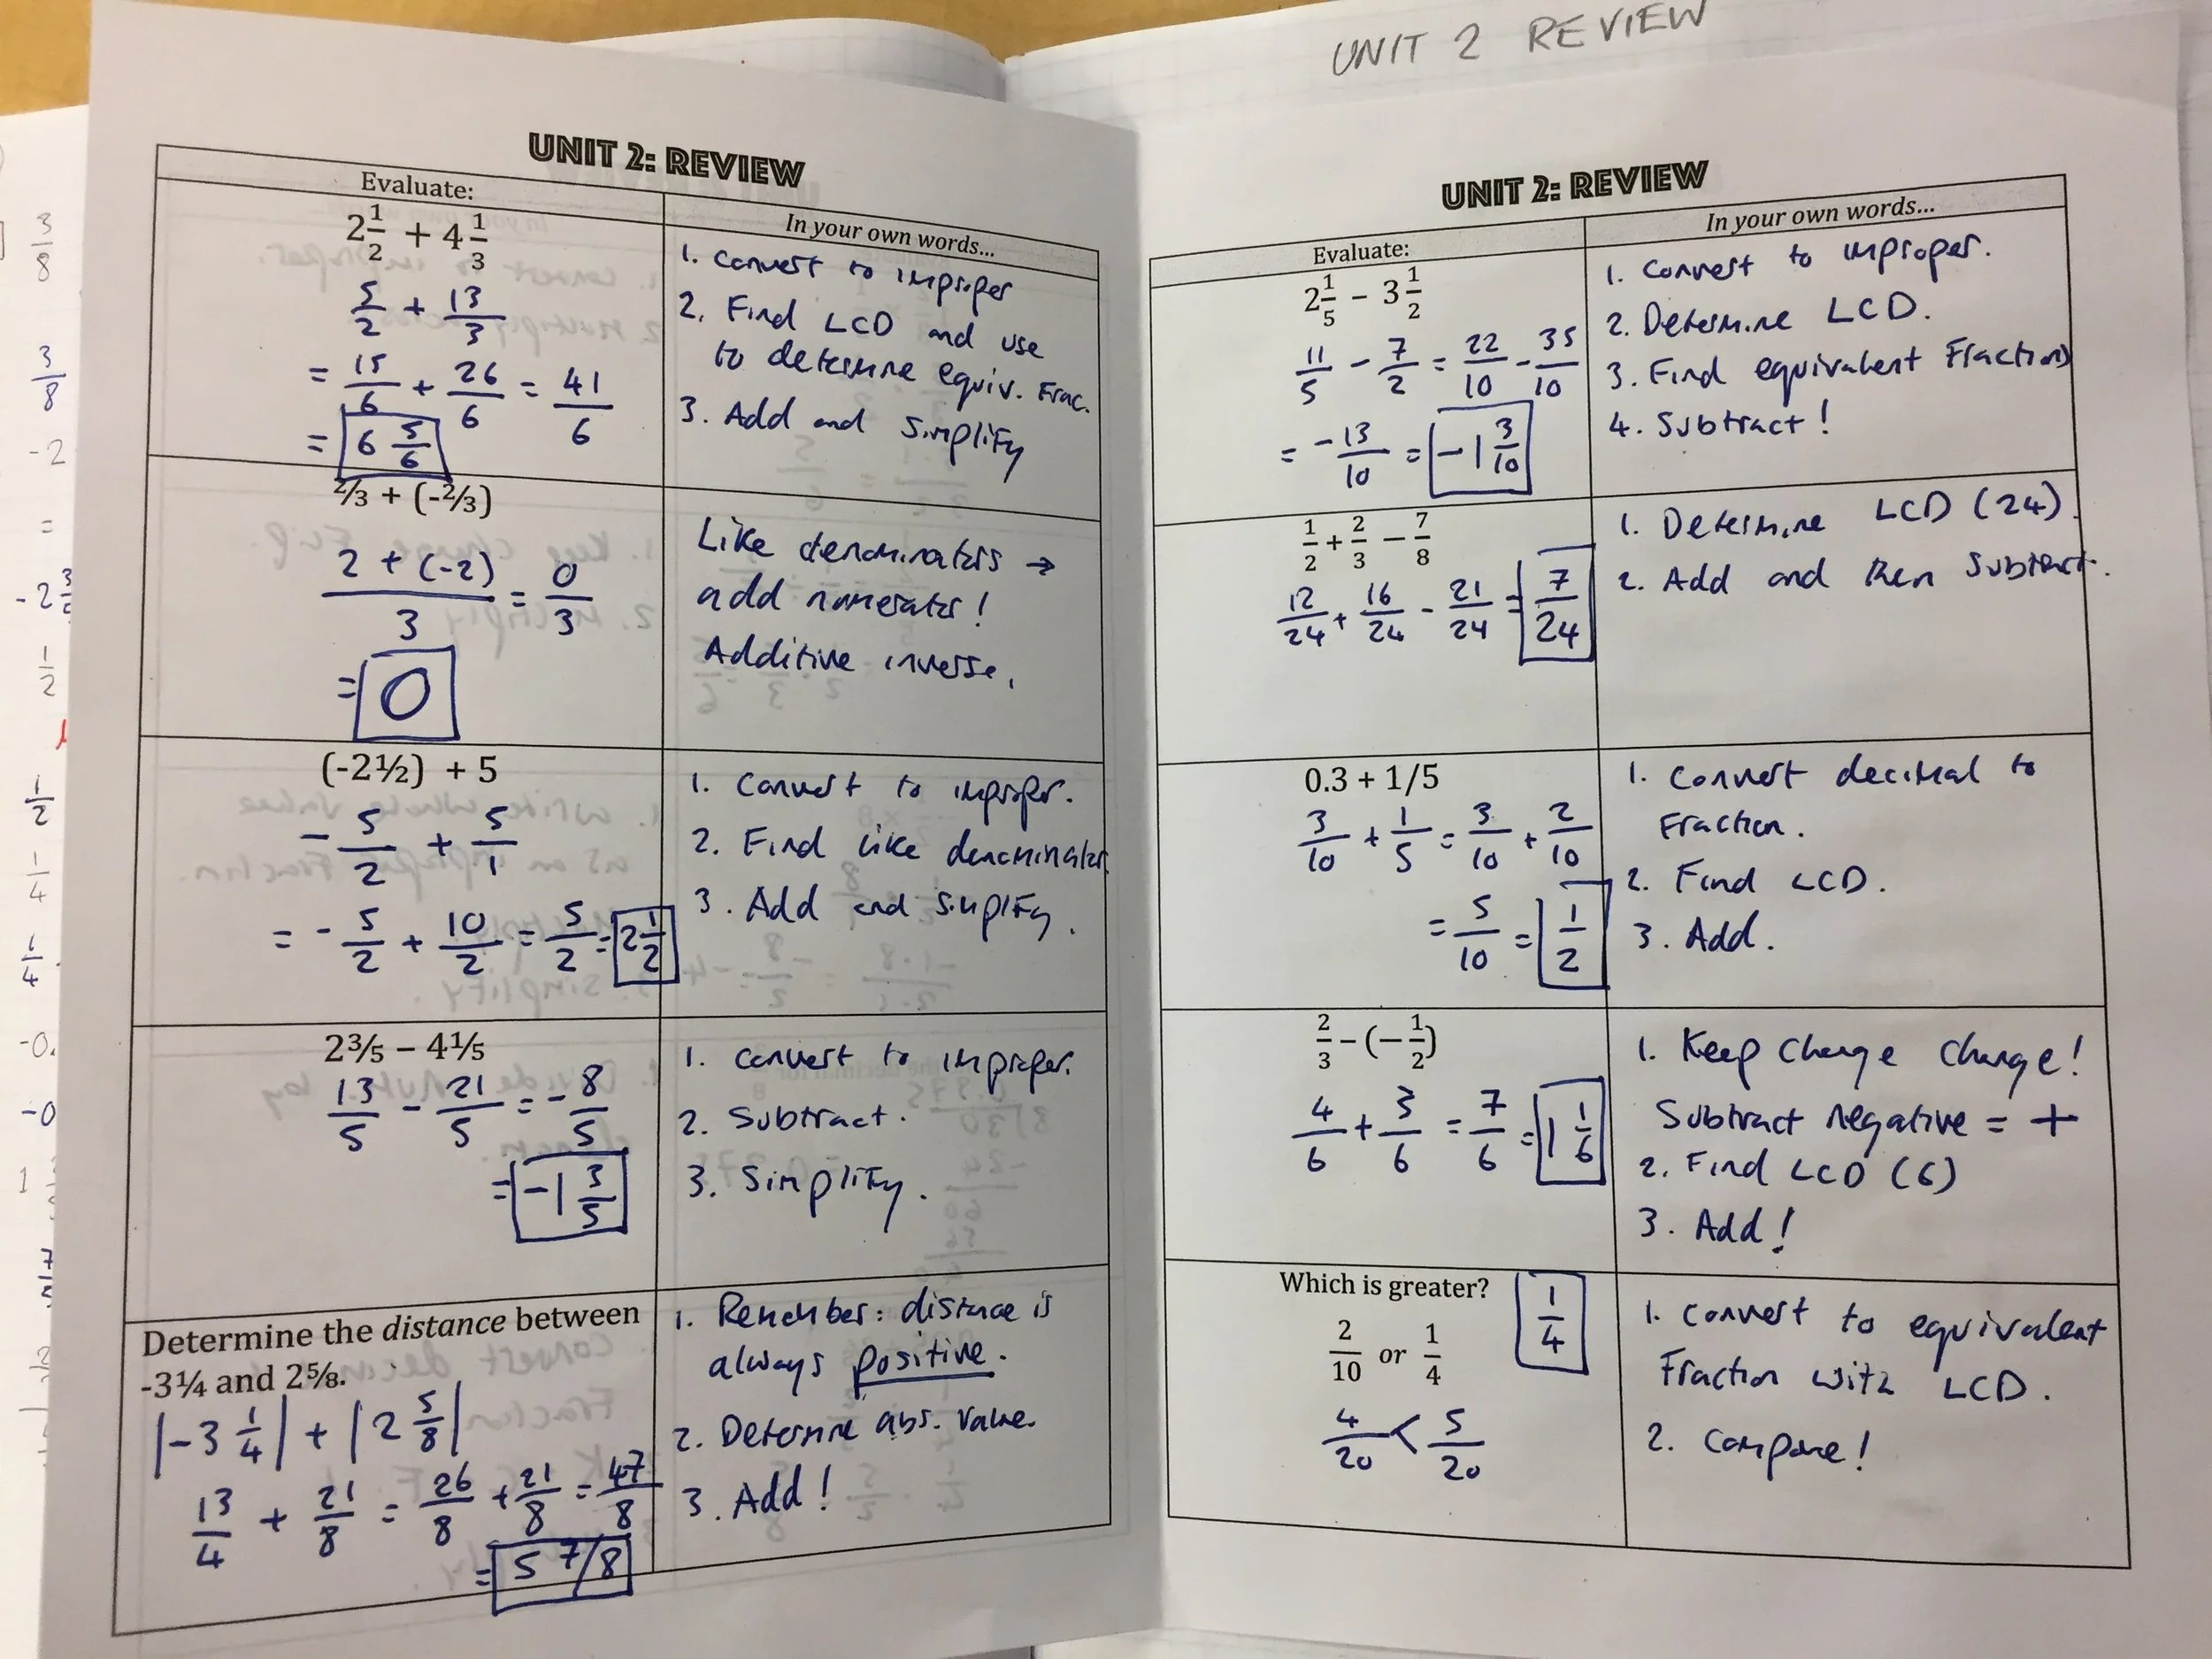 UNIT 2 REVIEW
UNIT 2: REVIEW
Evaluate:
In your own words...
2 1/2 + 4 1/3
5/2 + 13/3
= 15/6 + 26/6 = 41/6
= 6 5/6
1. Convert to improper
2. Find LCD and use
to determine equiv. Frac.
3. Add and Simplify
2/3 + (-2/3)
2 + (-2)/3 = 0/3
= 0
Like denominators →
add numerators!
Additive inverse.
(-2½) + 5
- 5/2 + 5/1
= - 5/2 + 10/2 = 5/2 = 2 1/2
1. Convert to improper.
2. Find like denominator
3. Add and simplify.
2⅗ – 4⅕
13/5 - 21/5 = - 8/5
= -1 3/5
1. Convert to improper.
2. Subtract.
3. Simplify.
Determine the distance between
-3¼ and 2⅝.
|-3 1/4| + |2 5/8|
13/4 + 21/8 = 26/8 + 21/8 = 47/8
= 5 7/8
1. Remember: distance is
always positive.
2. Determine abs. value.
3. Add!
UNIT 2: REVIEW
Evaluate:
In your own words...
2 1/5 – 3 1/2
11/5 - 7/2 = 22/10 - 35/10
= -13/10 = -1 3/10
1. Convert to improper.
2. Determine LCD.
3. Find equivalent Fractions
4. Subtract!
1/2 + 2/3 – 7/8
12/24 + 16/24 - 21/24 = 7/24
1. Determine LCD (24).
2. Add and then Subtract.
0.3 + 1/5
3/10 + 1/5 = 3/10 + 2/10
= 5/10 = 1/2
1. Convert decimal to
Fraction.
2. Find LCD.
3. Add.
2/3 – (–1/2)
4/6 + 3/6 = 7/6 = 1 1/6
1. Keep Change Change!
Subtract Negative = +
2. Find LCD (6)
3. Add!
Which is greater?
1/4
2/10 or 1/4
4/20 < 5/20
1. Convert to equivalent
Fraction with LCD.
2. Compare!